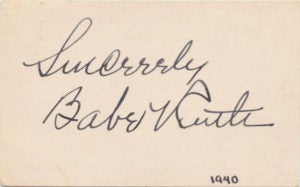 Sincerely
Babe Ruth
1940